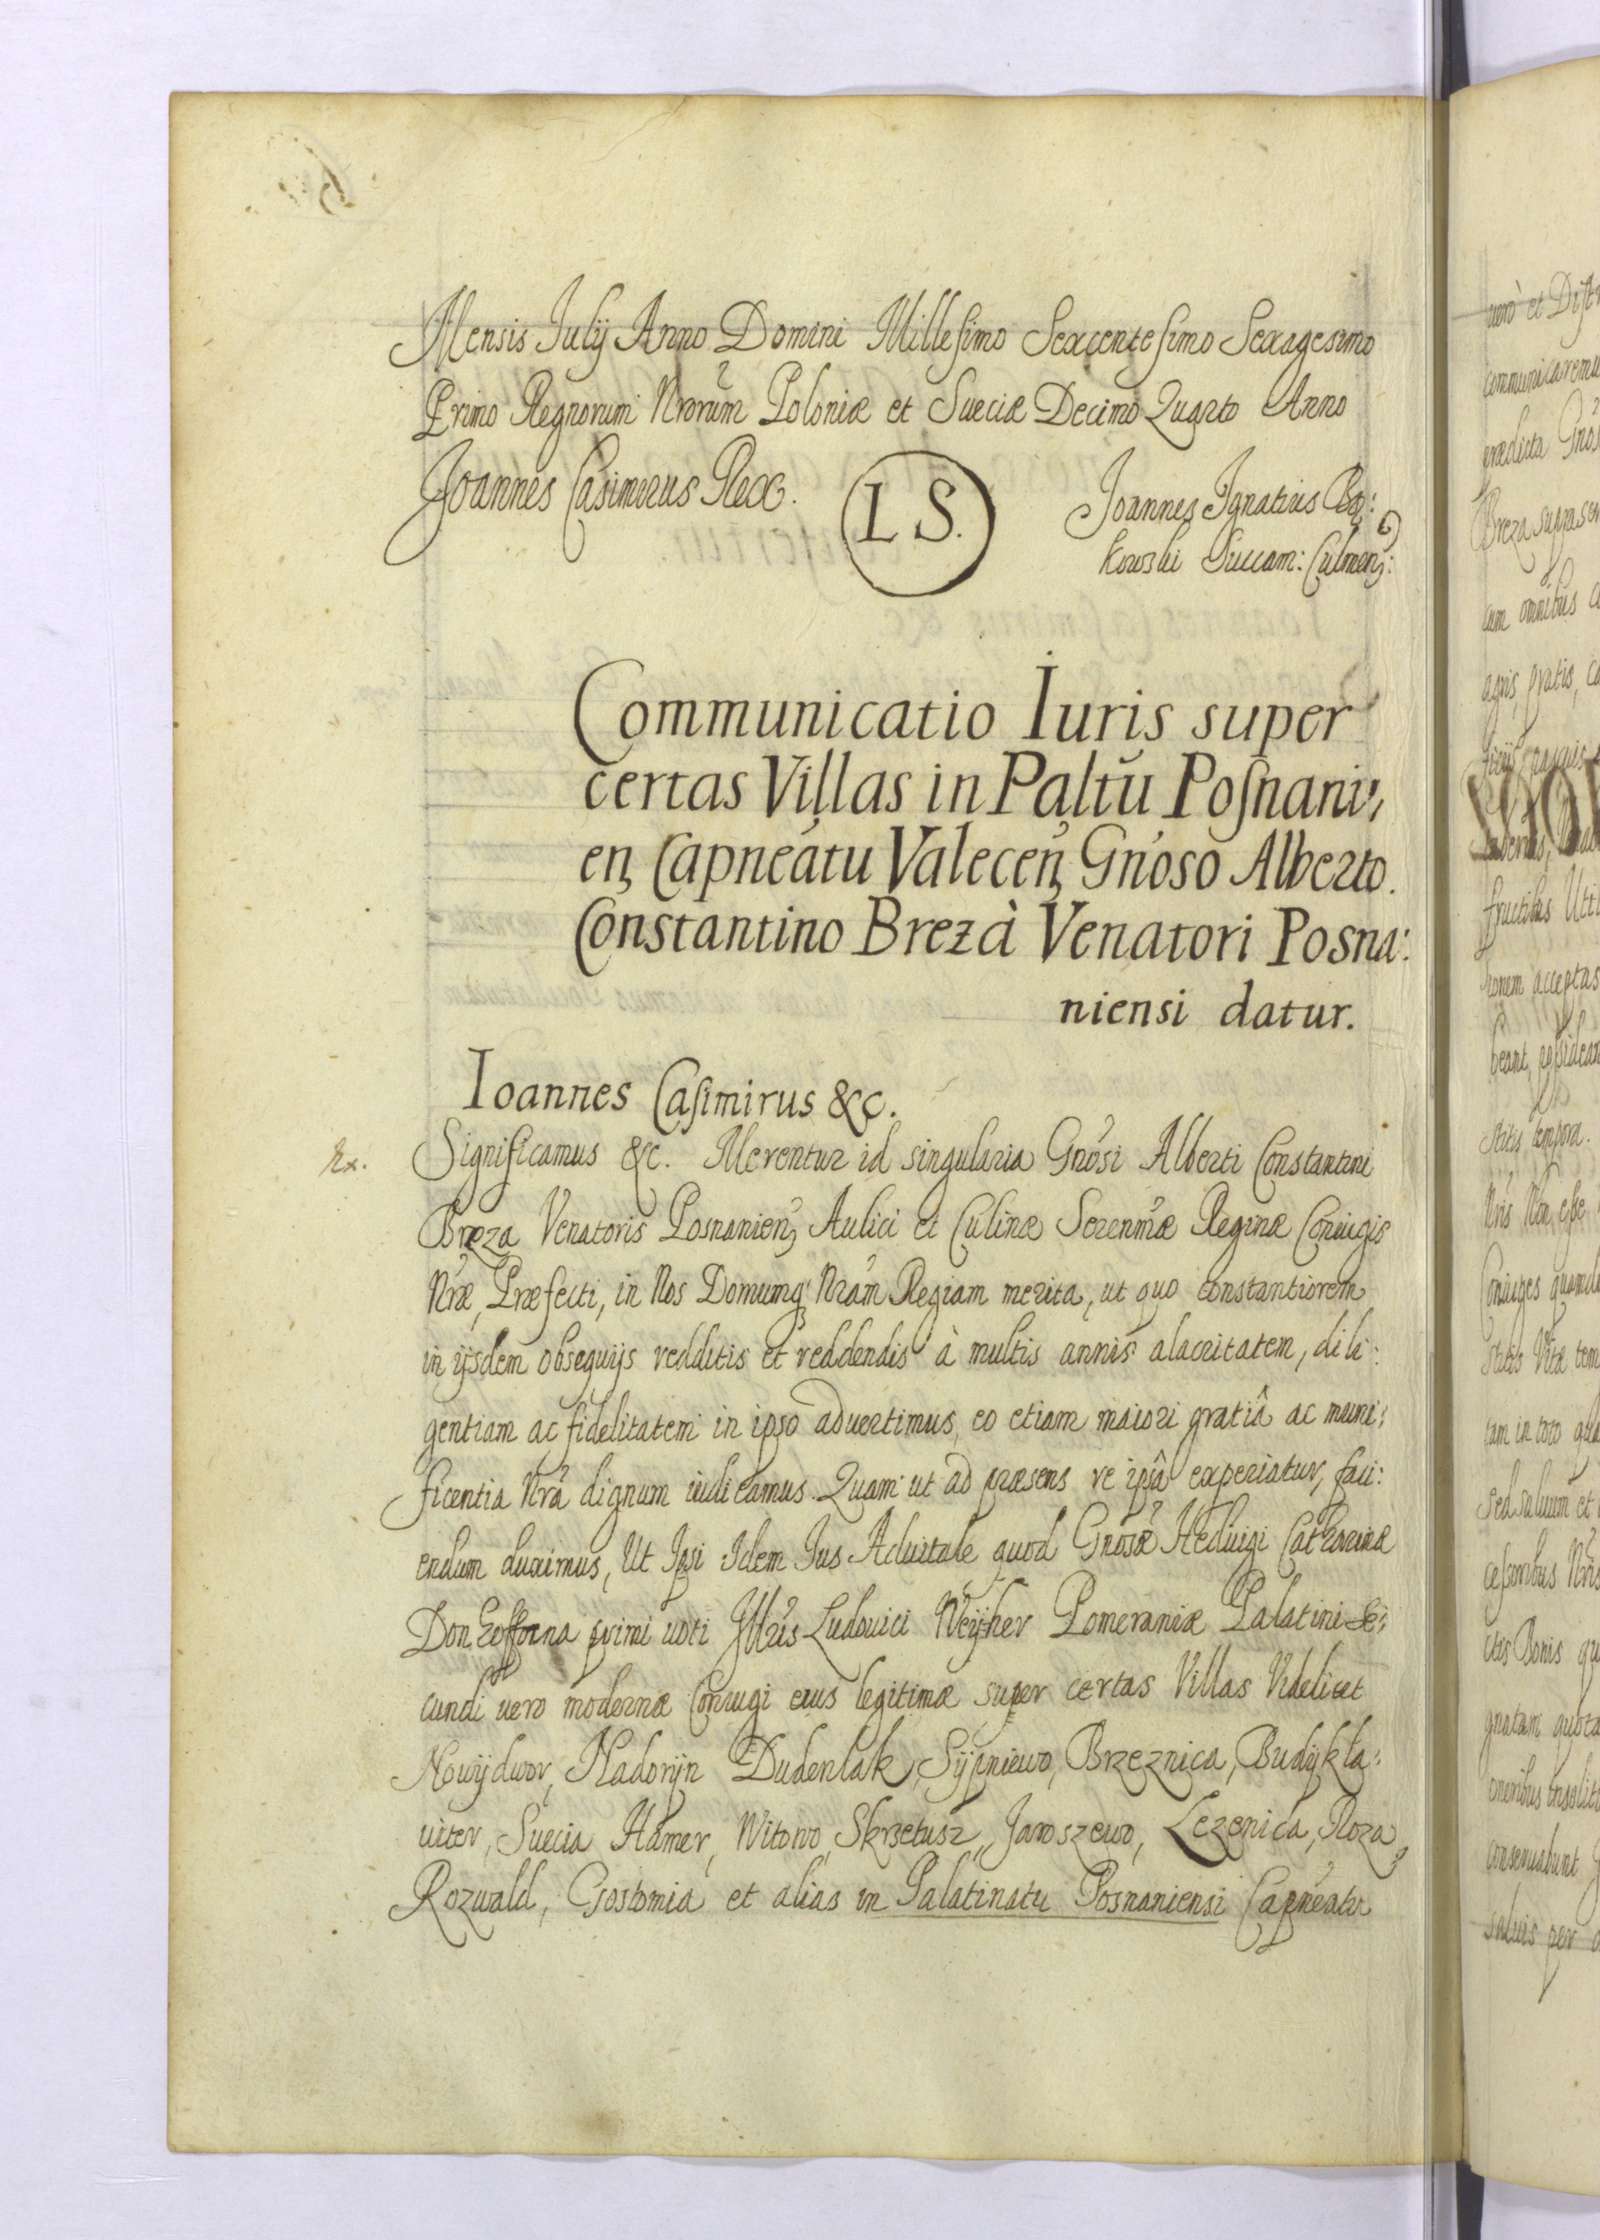 Mensis Iulij Anno Domini Millesimo Sexcentesimo Sexagesimo
Primo Regnorum Nrorum Poloniæ et Sueciæ Decimo Quarto Anno
Joannes Casimirus Rex.
L S.
Joannes Ignatius Bą:
kowski Succam: Culmen:
Communicatio Iuris super
certas Villas in Paltu Posnani,
en, Capneatu Valecen, Gnoso Alberto
Constantino Brezà Venatori Posna:
niensi datur.
Ioannes Casimirus &c.
Significamus &c. Merentur id singularia Gnosi Alberti Constantini
Breza Venatoris Posnanien, Aulici et Culinæ Serenmæ Reginæ Coniugis
Nræ, Præfecti, in Nos Domumq Nram Regiam merita, ut quo constantiorem
in ijsdem obsequijs redditis et reddendis à multis annis alacritatem, dili:
gentiam ac fidelitatem in ipso aduertimus, eo etiam maiori gratiâ ac muni:
ficentia Nrâ dignum iudicamus. Quam ut ad præsens re ipsâ experiatur, faci:
endum duximus, Ut Ipsi Idem Ius Aduitale quod Gnosæ Heduigi Catharinæ
Donhoffowna primi uoti Illris Ludouici Weijher Pomeraniæ Palatini Se:
cundi uero modernæ Coniugi eius legitimæ super certas Villas Videlicet
Nowijdwor, Nadorijn Dudenlak, Sijpniewo, Brzeznica, Budijkła:
uiter, Suecia Hamer, Witowo, Skrzetusz, Jaroszewo, Lezenica, Roza,
Rozwald, Gostomia et alias in Palatinatu Posnaniensi Capneatu
Rx.
uerò et Distr
communicaremu
prædicta Gnos
Breza suprascr
cum omnibus
agris, pratis,
fructibus Uti
tionem acceptas
beant, possidean
tempora.
Nris Non esse
Coniuges quamdi
Vitæ tem
tam in toto
sed saluum et
cessoribus Nris
ctis Bonis qu
gnatam quota
oneribus insolit
conseruabunt
saluis per